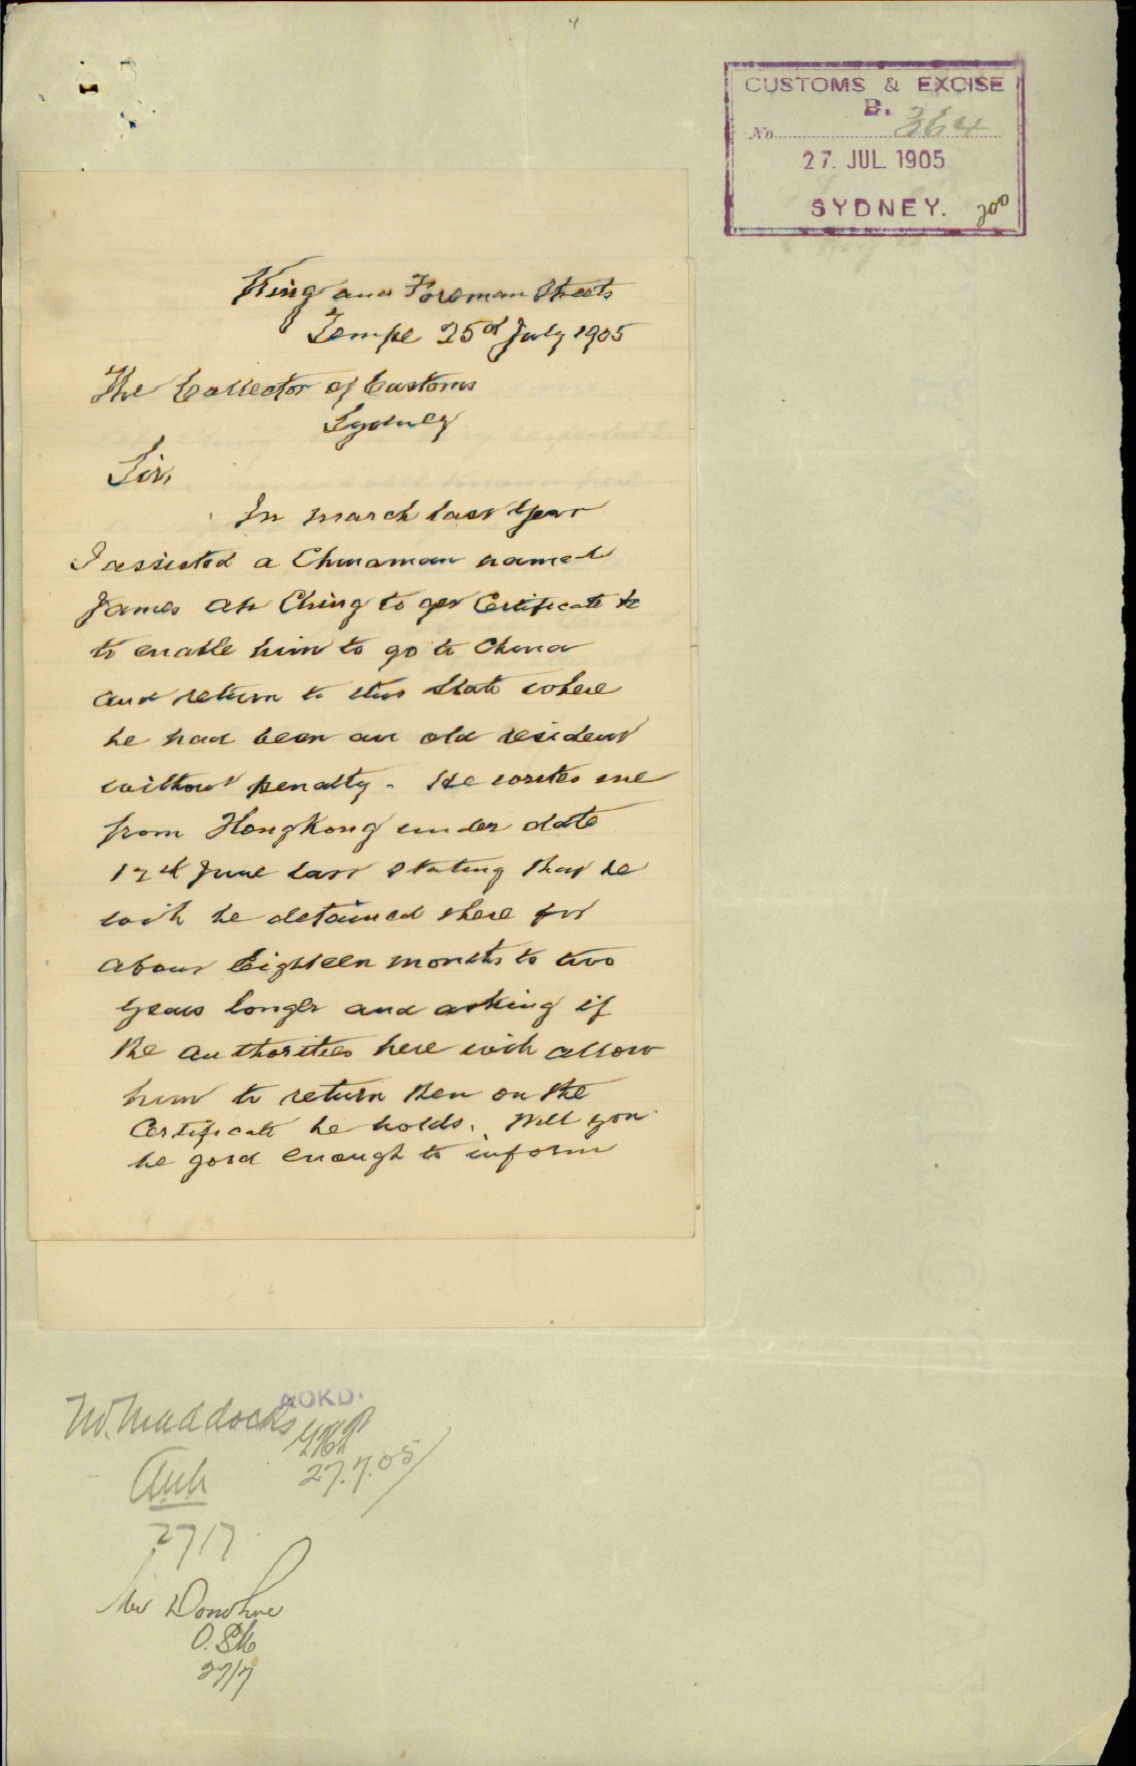 CUSTOMS & EXCISE
B.
No 364
27. JUL 1905
SYDNEY.
200
King and Foreman Streets
Tempe 25th July 1905
The Collector of Customs
Sydney
Sir,
In March last year
I assisted a Chinaman named
James Ah Ching to get Certificate to
to enable him to go to China
and return to this State where
he had been an old resident
without penalty. He writes me
from HongKong under date
17th June last stating that he
will be detained there for
about Eighteen months to two
years longer and asking if
the authorities here will allow
him to return then on the
Certificate he holds. Will you
be good enough to inform
ACKD.
W. Maddocks
27.7.05
27/7
Mr Donohue
27/7